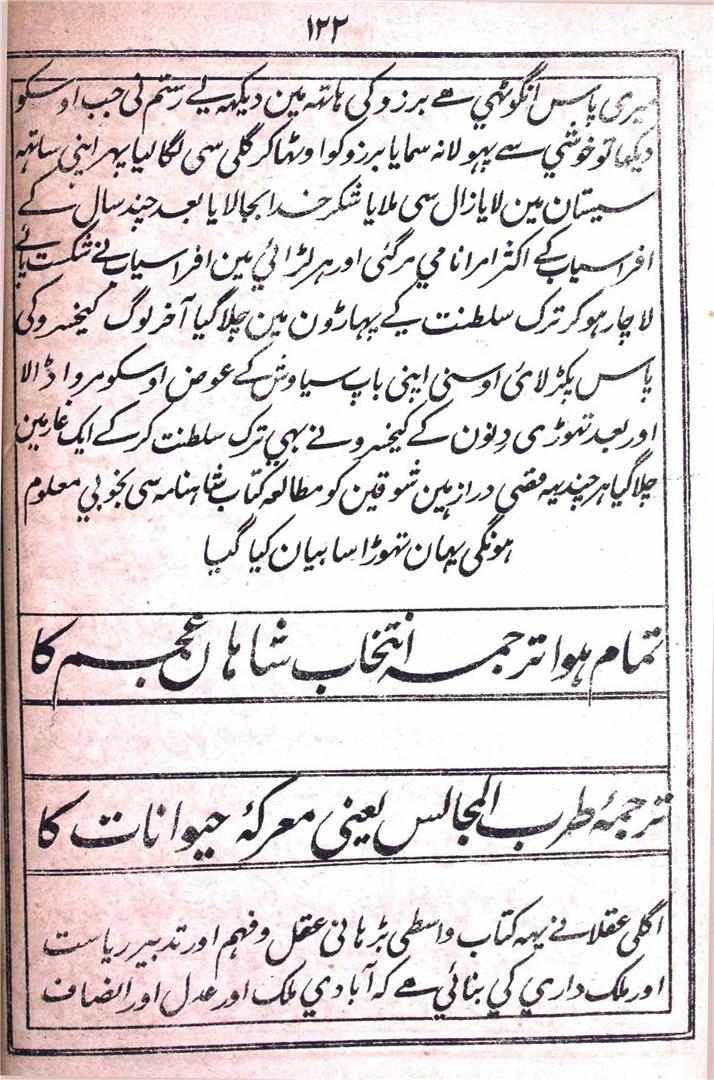 ۱۲۲
میری پاس انگوٹھي هے برزو کی ہاتہ مین دیکہہ لے رستم نی جب اوسکو
دیکھا تو خوشي سے پہولا نہ سمایا برزو کو اوٹھا کر گلی سی لگا لیا پہر اپنی ساتہہ
سیستان مین لایا زال سی ملایا شکر خدا بجا لایا بعد چند سال کے
افراسیاب کے اکثر امرا نامي مر گئی اور هر لڑائي مین افراسیاب نے شکست پائے
لاچار ہو کر ترک سلطنت کے پہاڑون مین چلا گیا آخر لوگ کیخسرو کی
پاس پکڑ لائی اوسنی اپنی باپ سیاوش کے عوض اوسکو مروا ڈالا
اور بعد تہوڑی دنون کے کیخسرو نے بہي ترک سلطنت کر کے ایک غار مین
چلا گیا هر چند یہہ قصی دراز ہین شوقین کو مطالعہ کتاب شاہنامہ سی بخوبي معلوم
ہونگی یہان تہوڑا سا بیان کیا گیا
تمام ہوا ترجمہ انتخاب شاہان عجم کا
ترجمۂ طرب المجالس یعنی معرکۂ حیوانات کا
اگلی عقلا نے یہہ کتاب واسطی بڑہانی عقل و فہم اور تدبیر ریاست
اور ملک داري کي بنائي هے کہ آبادي ملک اور عدل اور انصاف